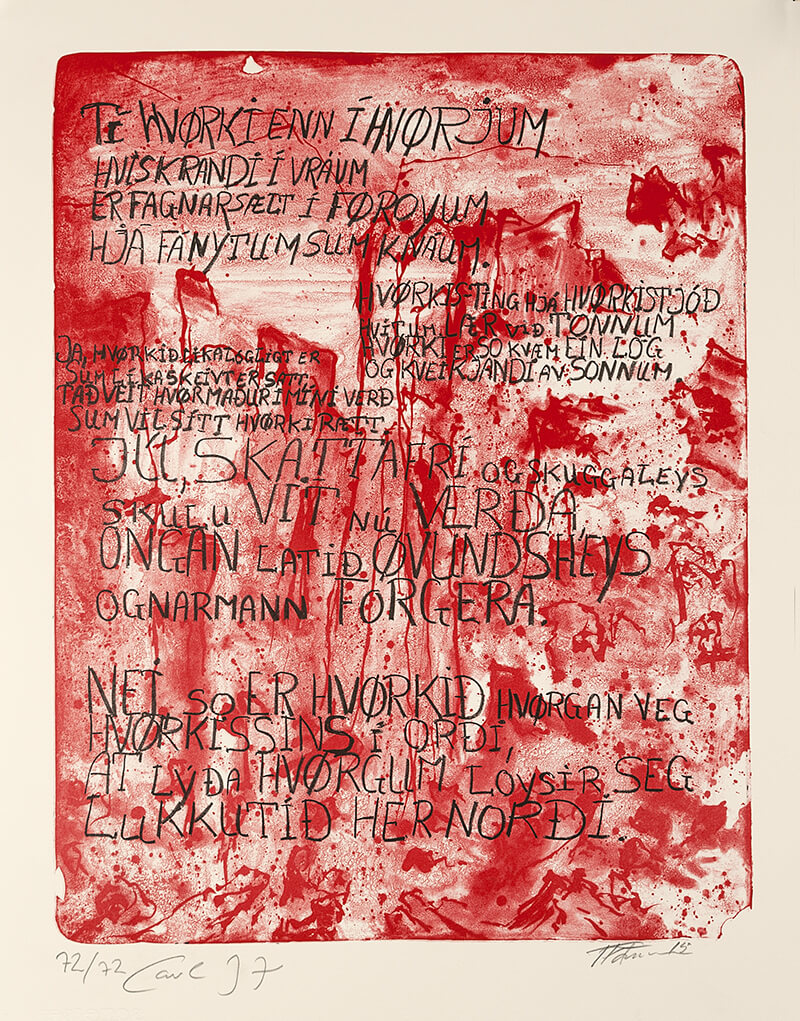 TÍ HVØRKI ENN Í HVØRJUM
HVÍSKRANDI Í VRÁUM
ER FAGNARSÆLT Í FØROYUM
HJÁ FÁNÝTUM SUM KNÁUM.
HVØRKISTING HJÁ HVØRKISTJÓÐ
HVÍTUM LÆR VIÐ TONNUM
HVØRKI ER SO KVÆM EIN LÓG
OG KVEIKJANDI AV SONNUM.
JA, HVØRKIÐ LÍKA LÓGLIGT ER
SUM LÍKA SKEIVT ER SATT.
TAÐ VEIT HVØR MAÐUR Í MÍNI VERÐ
SUM VIL SÍTT HVØRKI RÆTT.
JÚ, SKATTAFRÍ OG SKUGGALEYS
SKULU VIT NÚ VERÐA,
ONGAN LATIÐ ØVUNDSHEYS
OGNARMANN FORGERA.
NEI, SO ER HVØRKIÐ HVØRGAN VEG
HVØRKISSINS Í ORÐI,
AT LÝÐA HVØRGUM LOYSIR SEG
LUKKUTÍÐ HER NORÐI.
72/72